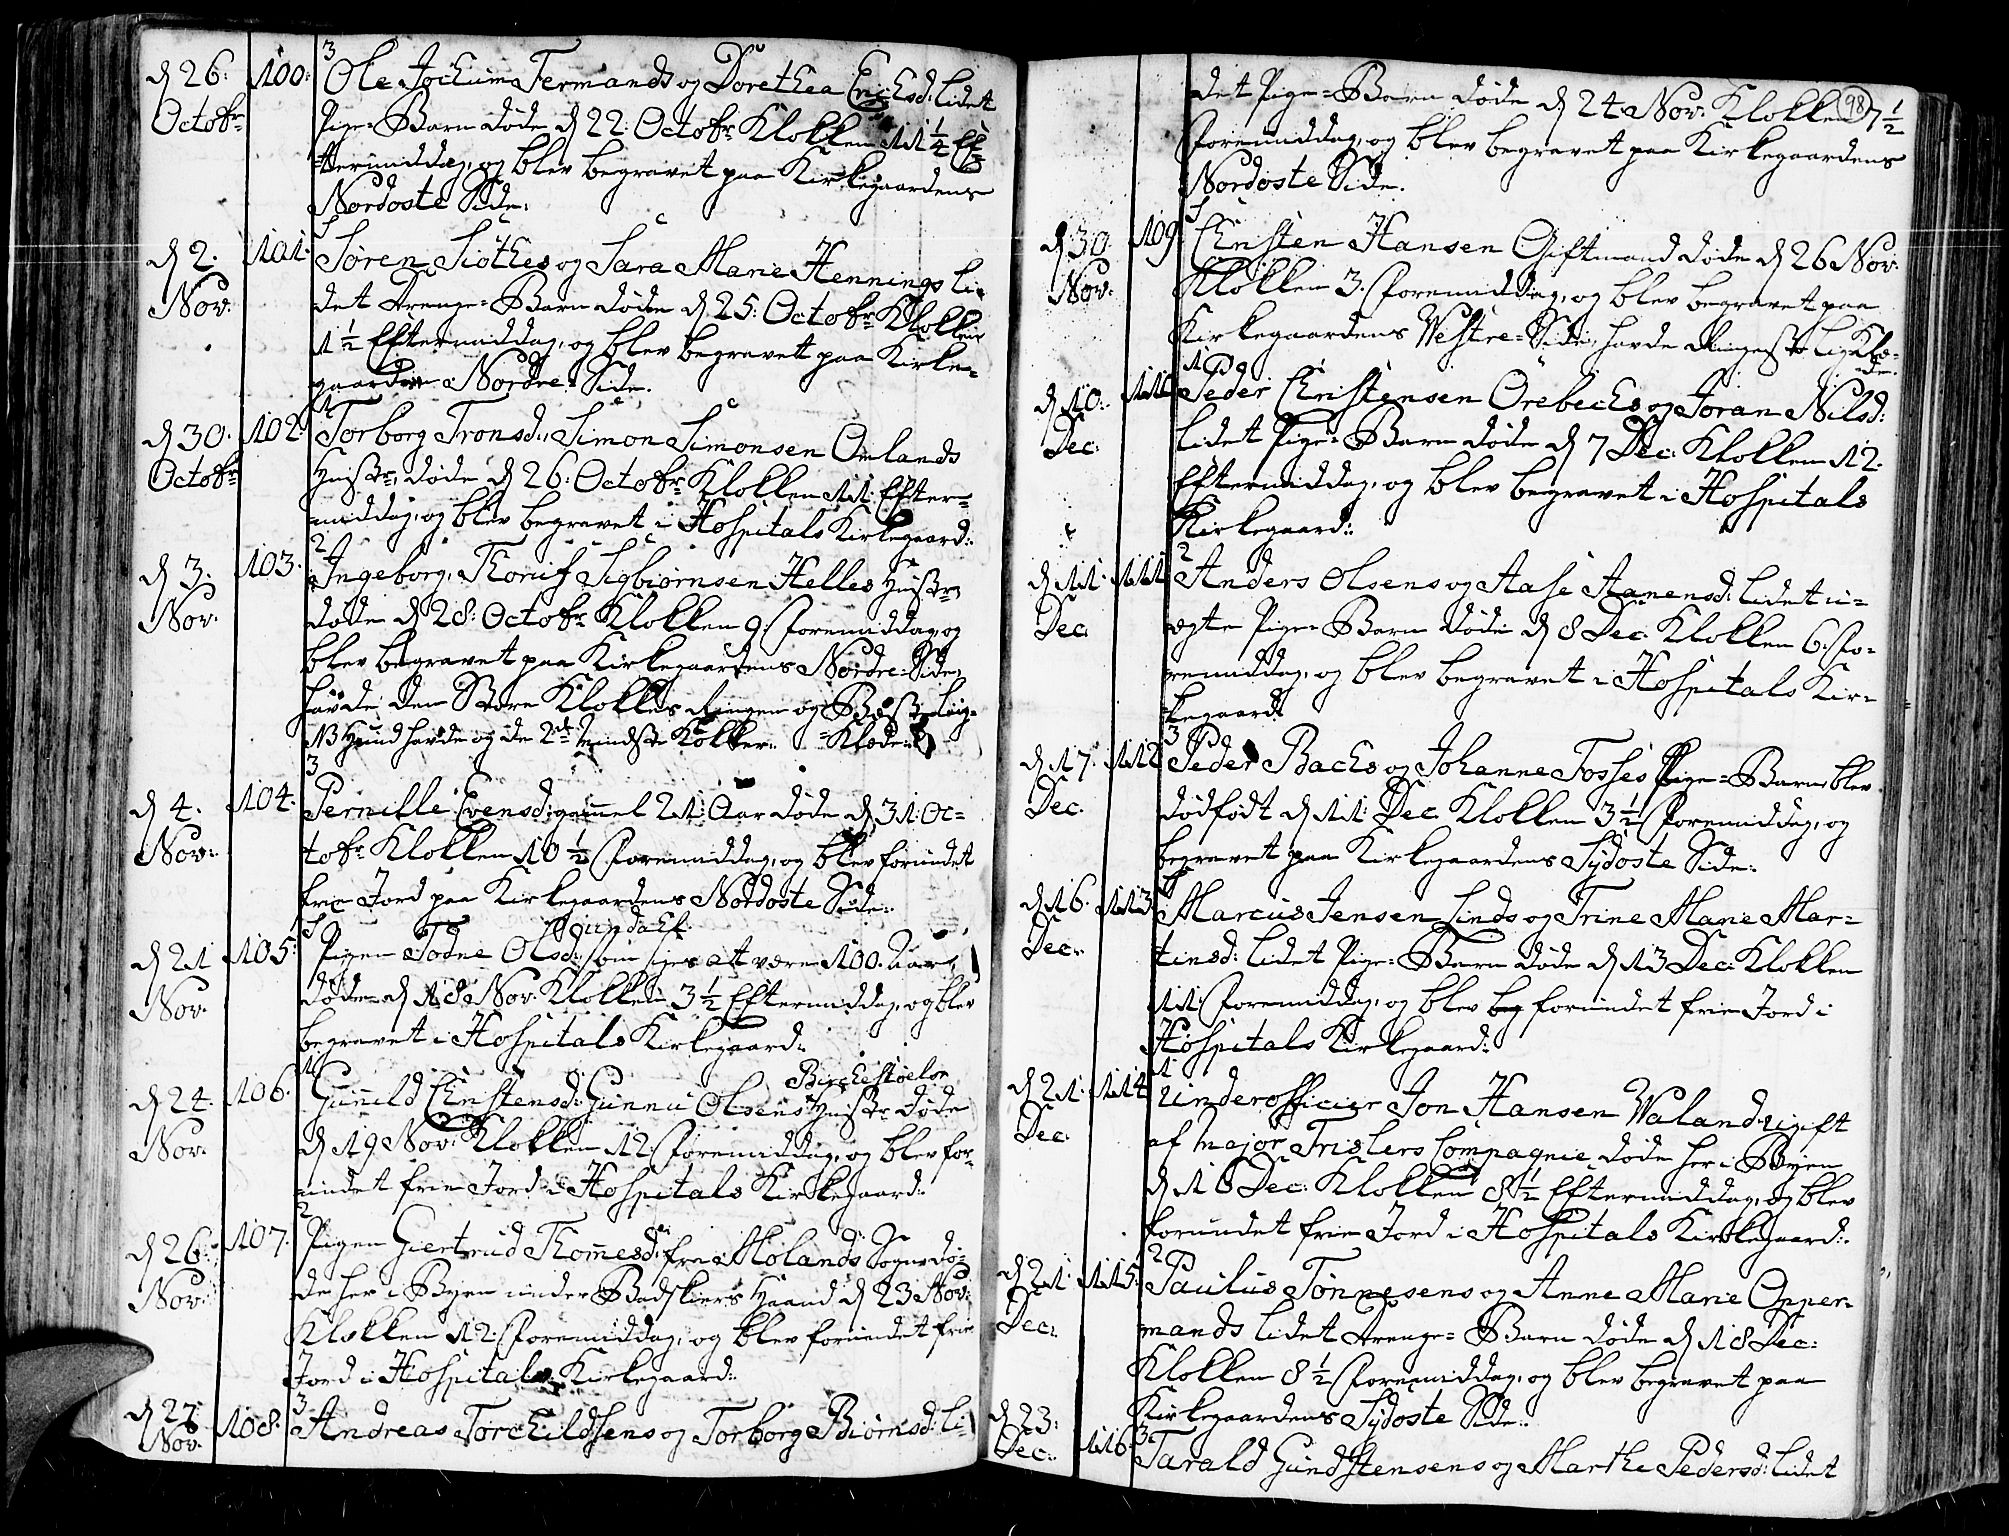 d 26: 100: 3 Ole Jochum Fermands og Dorethea Erichsd: lidet
Octobr Pige-Barn døde d 22: Octobr Klokken 11 1/4 Ef-
termiddag, og blev begravet paa Kirkegaardens
Nordoste Side.
d 2. 101: Søren Siøthes og Sara Marie Hennings li-
Nov: det Drenge-Barn døde d 25: Octobr Klokken
1 1/2 Eftermiddag, og blev begravet paa Kirke-
gaardens Nordre Side.
1
d 30. 102: Torborg Tronsd:, Simon Simonsen Omlands
Octobr Hustr: døde d 26. Octobr Klokken 11 Efter-
middag, og blev begravet i Hospitals Kirkegaard:
2
d 3. 103. Ingeborg, Sigbiørnsen Helles Hustr:
Nov. døde d 28: Octobr Klokken 9. Formiddag, og
blev begravet paa Kirkegaardens Nordre-Side,
havde den Store Klokkes Ringen og Bæste Liig-
NB Hund havde og de 2de mindste Kolker: -Klæde:
3
d 4. 104. Pernille Evensd: gammel 21 Aar døde d 31: Oc-
Nov: tobr Klokken 10 1/2 Formiddag, og blev forundet
frie Jord paa Kirkegaardens Nordoste Side:
d 21 105: Pigen Todne Olsd: som siges att være 100. Aar,
Nov. døde d 18 Nov. Klokken 3 1/2 Eftermiddag, og blev
begravet i Hospitals Kirkegaard:
1 Birchestølen
d 24. 106. Gunild Christensd: Gunnu Olsens Hustr: døde
Nov. d 19 Nov: Klokken 12 Formiddag, og blev for-
undet frie Jord i Hospitals Kirkegaard:
2
d 26: 107. Pigen Giertrud Thomesd: fra Holands Sogn dø-
Nov: de her i Byen under Badskiers Haand d 23 Nov:
Klokken 12: Formiddag, og blev forundet frie
Jord i Hospitals Kirkegaard:
3
d 27: 108: Andreas Torchildsens og Torborg Biørnsd: li-
Nov.
98
det Pige-Barn døde d 24 Nov: Klokken 7 1/2
Formiddag, og blev begravet paa Kirkegaardens
Nordoste Side.
d 30. 109. Christen Hansen Giftmand døde d 26 Nov:
Nov: Klokken 3. Formiddag, og blev begravet paa
Kirkegaardens Westre-Side, havde Ringeste Lig Klæ-
de.
1
d 10: 110 Peder Christensen Örebechs og Joran Nilsd:
Dec: lidet Pige-Barn døde d 7 Dec: Klokken 12.
Eftermiddag, og blev begravet i Hospitals
Kirkegaard:
2
d 11: 111 Anders Olsens og Aase Aanensd: lidet u-
Dec. ægte Pige-Barn døde d 8 Dec: Klokken 6. For-
remiddag, og blev begravet i Hospitals Kir-
kegaard:
3
d 17. 112 Peder Bachs og Johanne Fosses Pige-Barn blev
Dec. dødfødt d 11: Dec Klokken 3 1/2 Formiddag, og
begravet paa Kirkegaardens Sydoste Side:
d 16. 113 Marcus Jensen Linds og Trine Marie Mar-
Dec. tinsd: lidet Pige-Barn døde d 13 Dec: Klokken
11 Formiddag, og blev beg forundet frie Jord i
Hospitals Kirkegaard:
1
d 21: 114 Underofficier Jon Hansen Waland ugift
Dec: af Major Trislers Compagnie døde her i Byen
d 16 Dec: Klokken 8 1/2 Eftermiddag, og blev
forundet frie Jord i Hospitals Kirkegaard:
2
d 21: 115: Paulus Tønnesens og Anne Marie Opper-
Dec: mands lidet Drenge-Barn døde d 18 Dec:
Klokken 8 1/2 Formiddag, og blev begravet paa
Kirkegaardens Sydoste Side:
3
d 23: 116: Tarald Gundstensens og Marthe Pedersd: lidet
Dec: